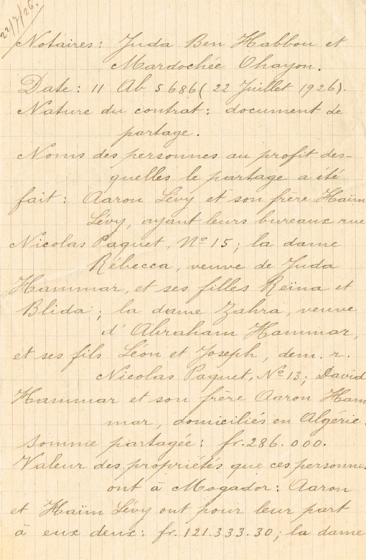 22/7/26.
Notaires: Juda Ben Habbou et
Mardochée Ohayon.
Date: 11 Ab 5686 (22 Juillet 1926).
Nature du contrat: document de
partage.
Noms des personnes au profit des-
quelles le partage a été
fait: Aaron Lévy et son frère Haïm
Lévy, ayant leurs bureaux rue
Nicolas Paquet, No 15; la dame
Rébecca, veuve de Juda
Hammar, et ses filles Reïna et
Blida; la dame Zahra, veuve
d'Abraham Hammar,
et ses fils Léon et Joseph, dem. r.
Nicolas Paquet, No 13; David
Hammar et son frère Aaron Ham
mar, domiciliés en Algérie.
Somme partagée: fr. 286.000.
Valeur des propriétés que ces personnes
ont à Mogador: Aaron
et Haïm Lévy ont pour leur part
à eux deux: fr. 121.333.30; la dame